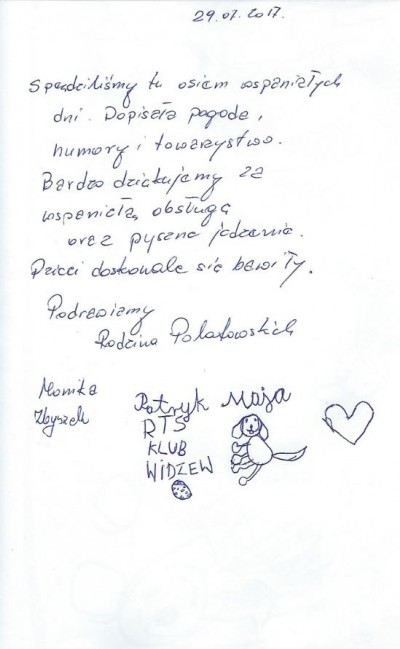 29.07.2017.
Spędziliśmy tu osiem wspaniałych
dni. Dopisała pogoda,
humory i towarzystwo.
Bardzo dziękujemy za
wspaniałą obsługę
oraz pyszne jedzenie.
Dzieci doskonale się bawiły.
Pozdrawiamy
Rodzina
Monika
Zbyszek
Patryk Maja
RTS
KLUB
WIDZEW